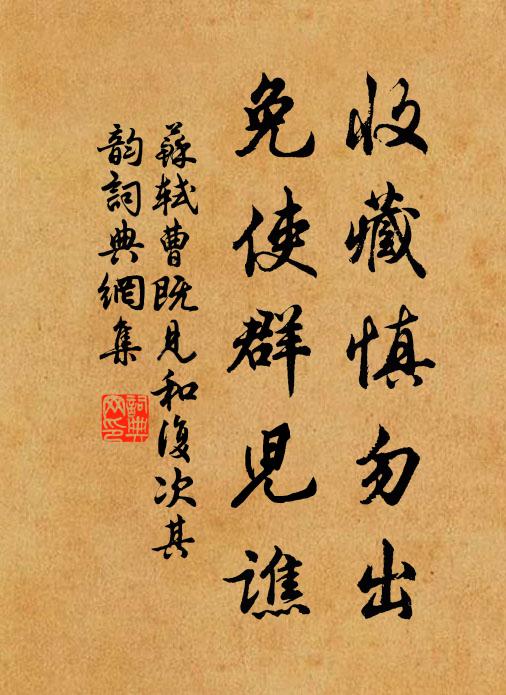 收藏慎勿出
免使群児譙
蘇軾曹既見和復次其
韵詞典網集
詞典
网印